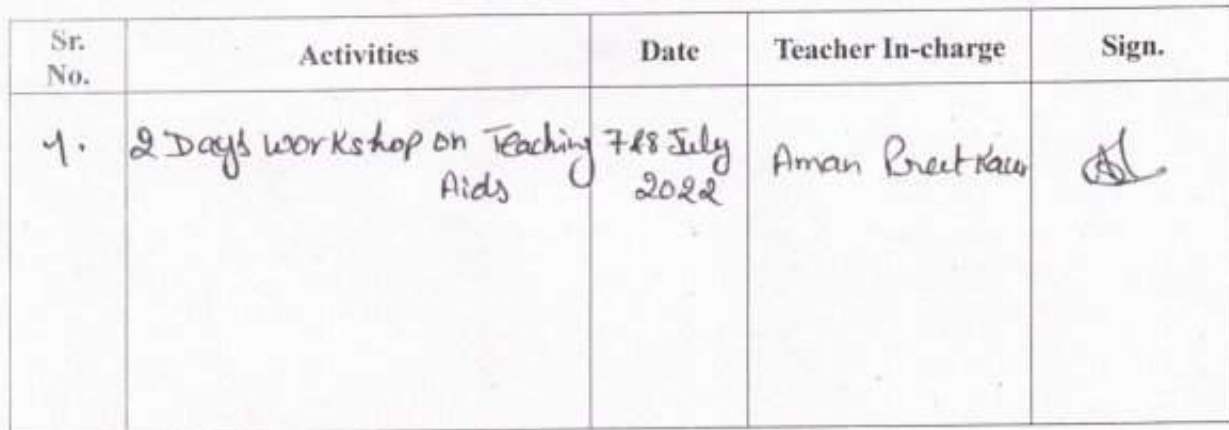 Sr. No. Activities Date Teacher In-charge Sign.
1. 2 Days workshop on Teaching Aids 7&8 July 2022 Aman Preet Kaur